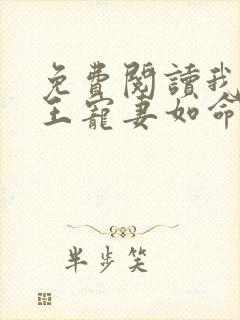 免費閱讀我
王寵妻如命
半步笑